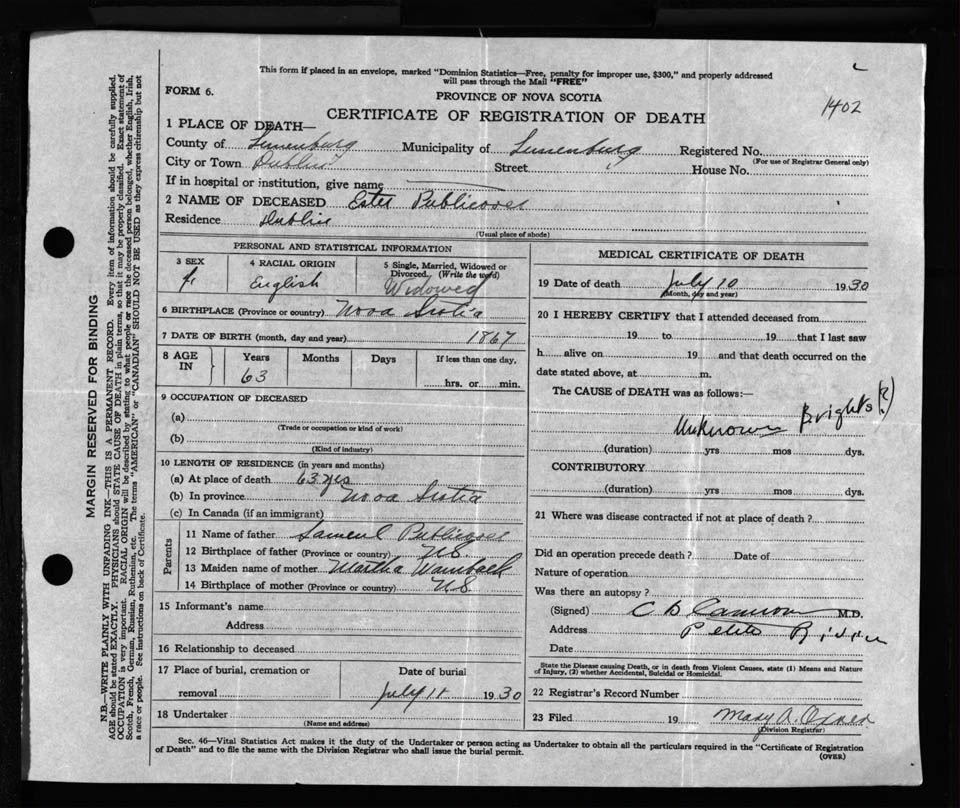 This form if placed in an envelope, marked "Dominion Statistics—Free, penalty for improper use, $300," and properly addressed
will pass through the Mail "FREE"
FORM 6.
PROVINCE OF NOVA SCOTIA
1402
CERTIFICATE OF REGISTRATION OF DEATH
1 PLACE OF DEATH—
County of Lunenburg Municipality of Lunenburg Registered No.
(For use of Registrar General only)
City or Town Dublin Street House No.
If in hospital or institution, give name
2 NAME OF DECEASED Ester Publicover
Residence Dublin
(Usual place of abode)
PERSONAL AND STATISTICAL INFORMATION
3 SEX
f.
4 RACIAL ORIGIN
English
5 Single, Married, Widowed or
Divorced. (Write the word)
Widowed
6 BIRTHPLACE (Province or country) Nova Scotia
7 DATE OF BIRTH (month, day and year) 1867
8 AGE IN
Years Months Days If less than one day,
63 hrs. or min.
9 OCCUPATION OF DECEASED
(a)
(Trade or occupation or kind of work)
(b)
(Kind of industry)
10 LENGTH OF RESIDENCE (in years and months)
(a) At place of death 63 yrs
(b) In province Nova Scotia
(c) In Canada (if an immigrant)
Parents
11 Name of father Samuel Publicover
12 Birthplace of father (Province or country) N.S.
13 Maiden name of mother Martha Wambach
14 Birthplace of mother (Province or country) N.S.
15 Informant's name
Address
16 Relationship to deceased
17 Place of burial, cremation or
removal
Date of burial
July 11 1930
18 Undertaker
(Name and address)
MEDICAL CERTIFICATE OF DEATH
19 Date of death July 10 1930
(Month, day and year)
20 I HEREBY CERTIFY that I attended deceased from
19 to 19 that I last saw
h alive on 19 and that death occurred on the
date stated above, at m.
The CAUSE of DEATH was as follows:—
Unknown Brights (?)
(duration) yrs mos dys.
CONTRIBUTORY
(duration) yrs mos dys.
21 Where was disease contracted if not at place of death?
Did an operation precede death? Date of
Nature of operation
Was there an autopsy?
(Signed) C B Cameron M.D.
Address Petite Riviere
Date
State the Disease causing Death, or in death from Violent Causes, state (1) Means and Nature
of Injury, (2) whether Accidental, Suicidal or Homicidal.
22 Registrar's Record Number
23 Filed 19 Mary A. Oxner
(Division Registrar)
Sec. 46—Vital Statistics Act makes it the duty of the Undertaker or person acting as Undertaker to obtain all the particulars required in the "Certificate of Registration
of Death" and to file the same with the Division Registrar who shall issue the burial permit.
(OVER)
MARGIN RESERVED FOR BINDING
N.B.—WRITE PLAINLY WITH UNFADING INK—THIS IS A PERMANENT RECORD. Every item of information should be carefully supplied.
AGE should be stated EXACTLY. PHYSICIANS should STATE CAUSE OF DEATH in plain terms, so that it may be properly classified. Exact statement of
OCCUPATION is very important. RACIAL ORIGIN will be described by stating to what people or race the deceased person belonged, whether English, Irish,
Scotch, French, German, Russian, Ruthenian, etc. The terms "AMERICAN" or "CANADIAN" SHOULD NOT BE USED as they express citizenship but not
a race or people. See instructions on back of Certificate.